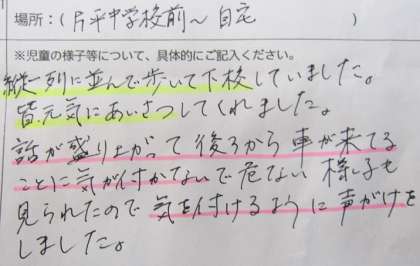 場所：（片平中学校前～自宅
※児童の様子等について、具体的にご記入ください。
縦一列に並んで歩いて下校していました。
皆元気にあいさつしてくれました。
話が盛り上がって後ろから車が来てる
ことに気が付かないで危ない様子も
見られたので気を付けるように声がけを
しました。